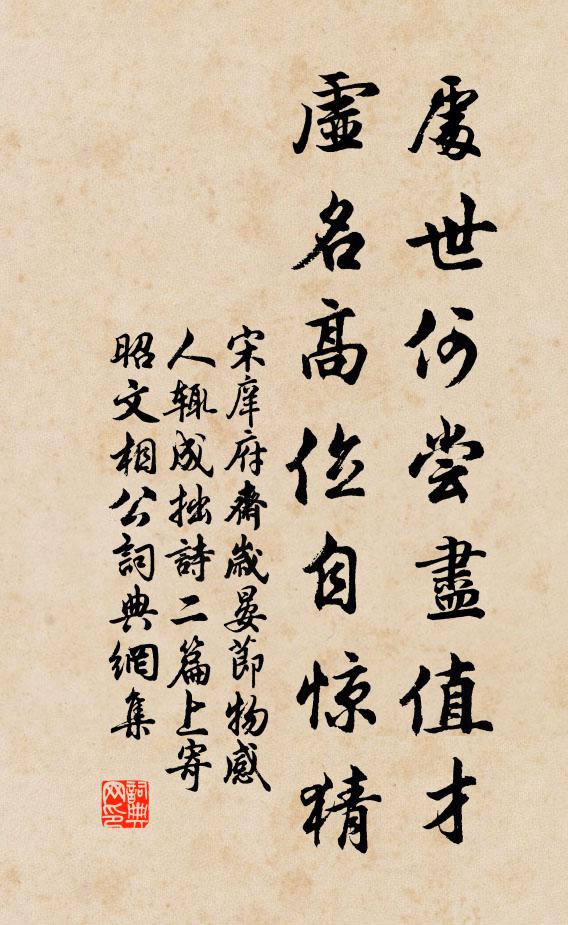 處世何尝盡值才
虛名高位自惊猜
宋庠府齋歲晏節物感
人輒成拙詩二篇上寄
昭文相公詞典網集
詞典
网印